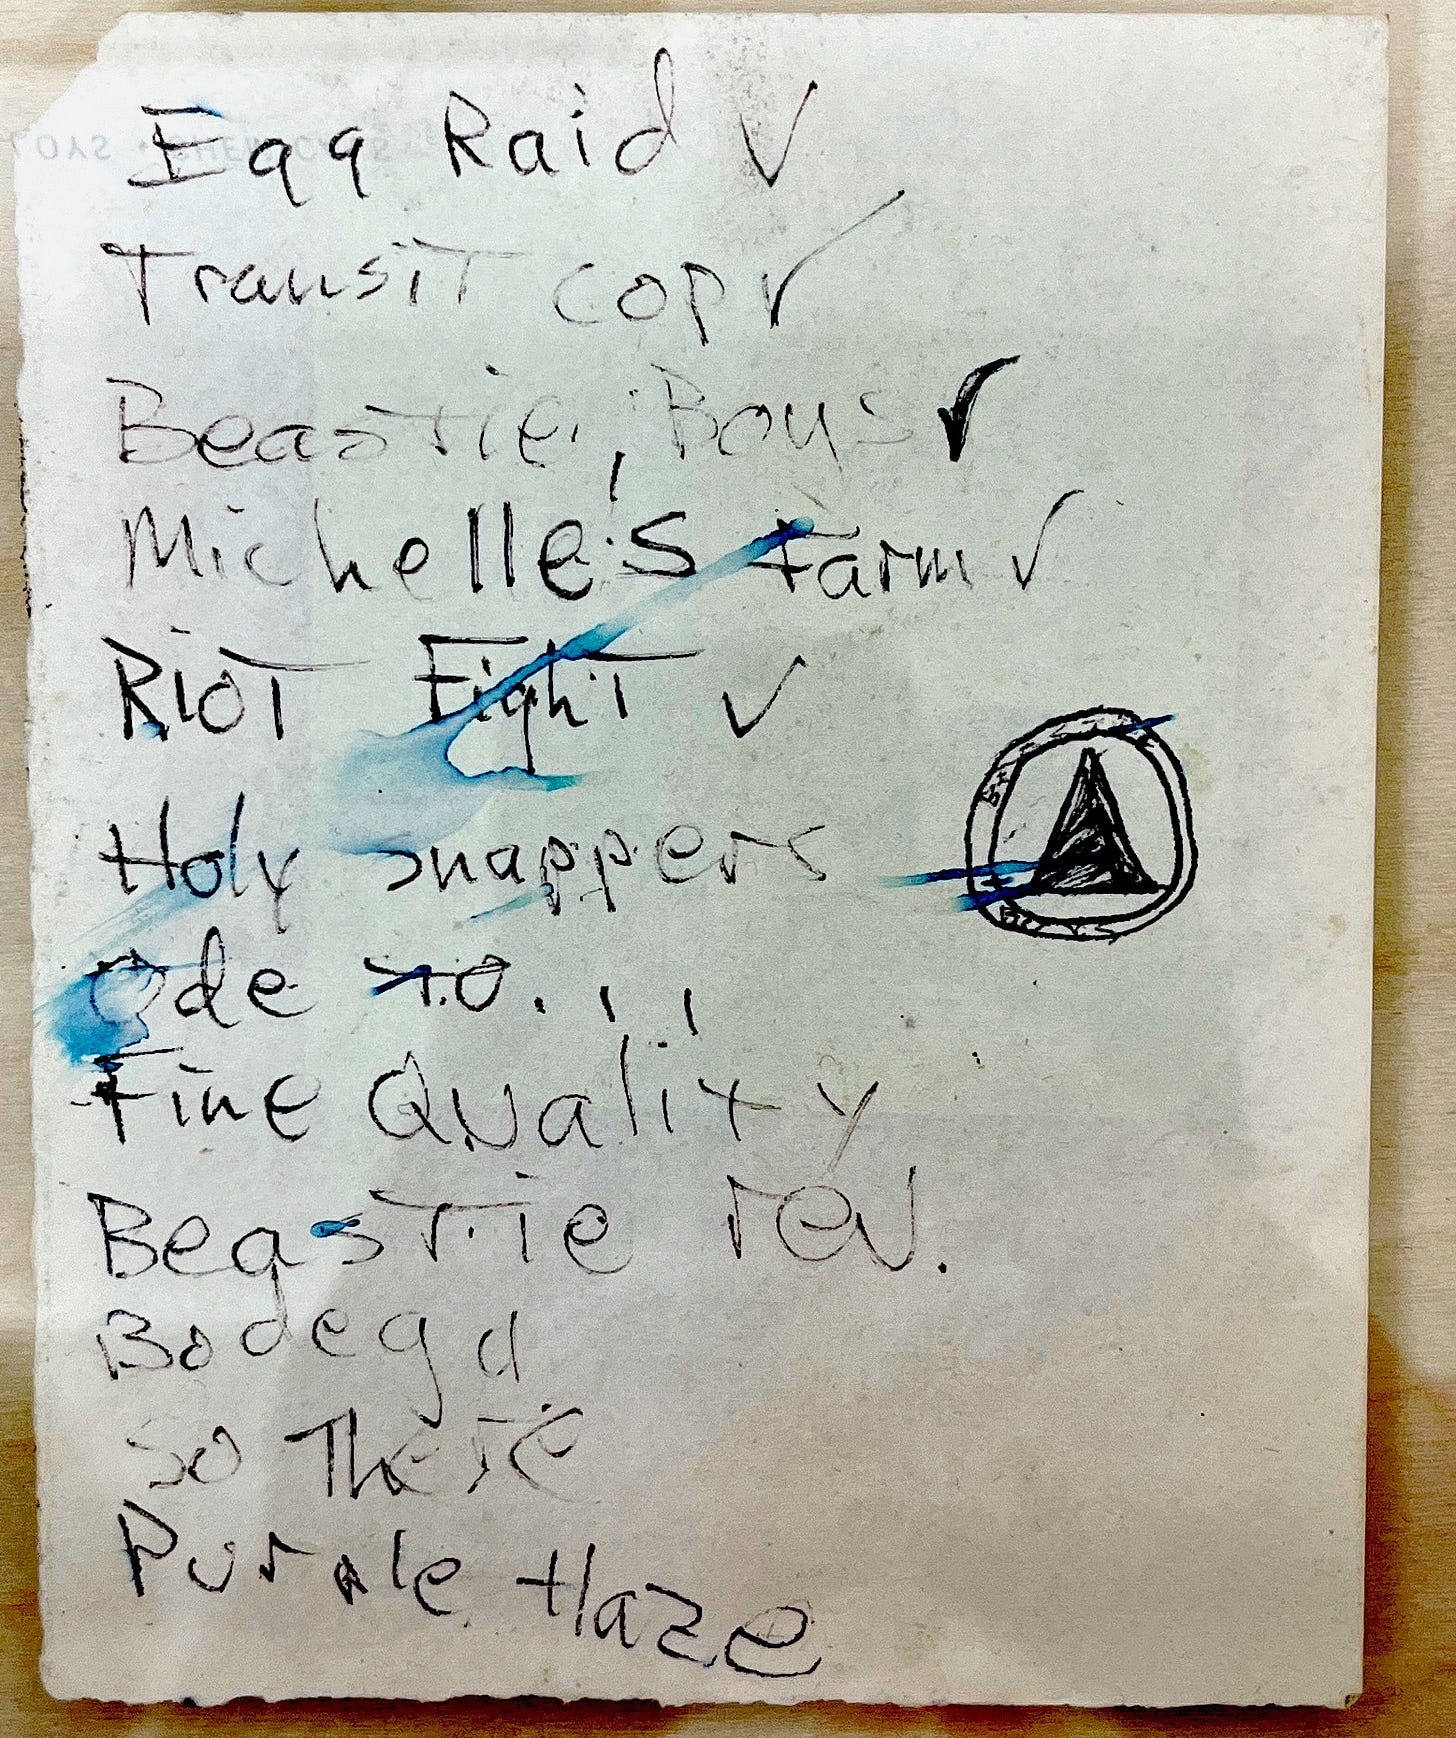 Egg Raid ✓
Transit cop ✓
Beastie Boys ✓
Michelle's Farm ✓
Riot Fight ✓
Holy snappers
Ode to...
Fine Quality
Beastie rev.
Bodega
So There
Purple Haze